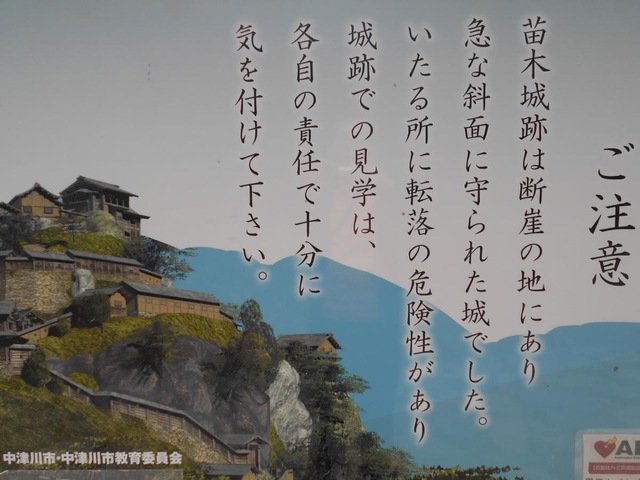 ご注意
苗木城跡は断崖の地にあり
急な斜面に守られた城でした。
いたる所に転落の危険性があり
城跡での見学は、
各自の責任で十分に
気を付けて下さい。
中津川市・中津川市教育委員会